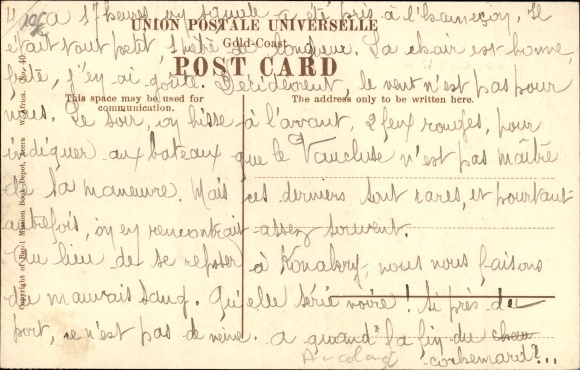 4
106
à 17 heures, un squale a été pris à l'hameçon. Il
UNION POSTALE UNIVERSELLE
était tout petit, 1 mètre de longueur. La chair est bonne,
Gold-Coast
POST CARD
frite, j'y ai goûté. Décidément, le vent n'est pas pour
This space may be used for communication.
The address only to be written here.
nous. Le soir, on hisse à l'avant, 2 feux rouges, pour
indiquer aux bateaux que le Vaucluse n'est pas maître
de sa manœuvre. Mais ces derniers sont rares, et pourtant
autrefois, on en rencontrait assez souvent.
Au lieu de se reposer à Konakry, nous nous faisons
du mauvais sang. Qu'elle série noire! Si près du
port, ce n'est pas de veine. à quand la fin du
cochemard?...
Copyright of Basel Mission Book-Depôt, Accra W. Africa. No. 40